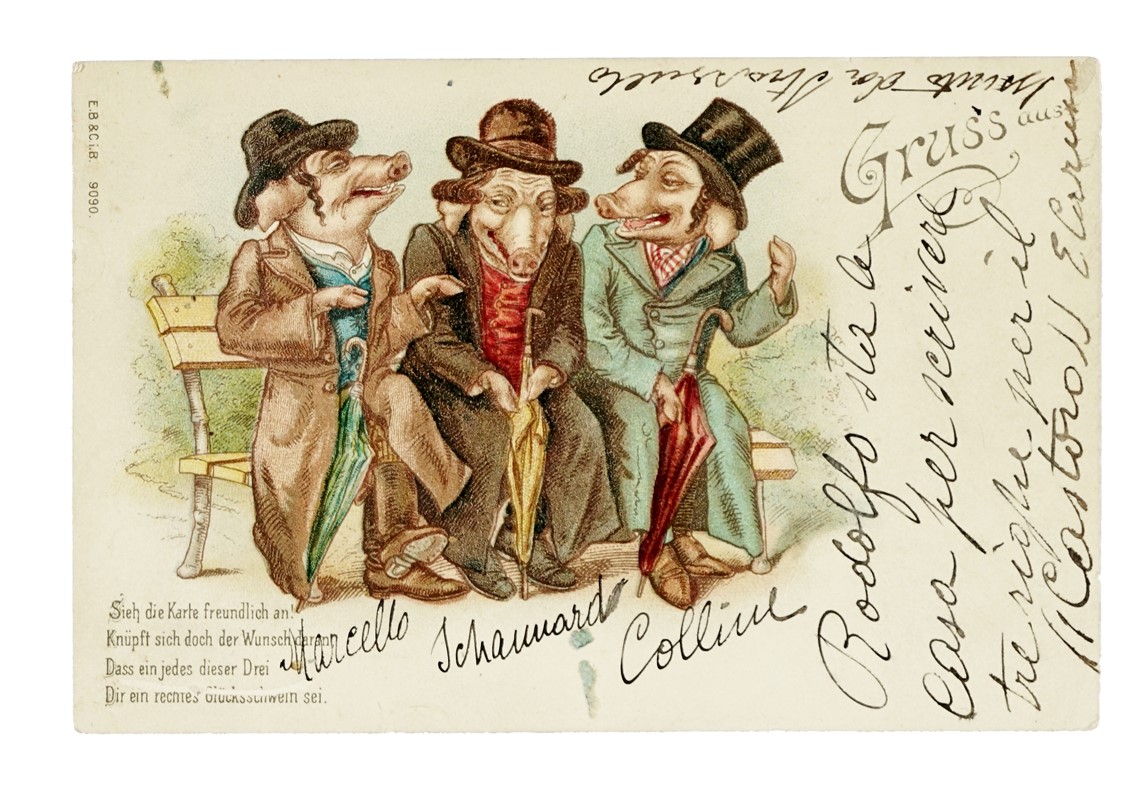 E.B & C i.B. 9090.
Gruss aus
Sieh die Karte freundlich an!
Knüpft sich doch der Wunsch daran
Dass ein jedes dieser Drei
Dir ein rechtes Glücksschwein sei.
Marcello
Schaunard
Colline
Rodolfo sta a
casa per scrivere
tre righe per il
"Castoro"
da